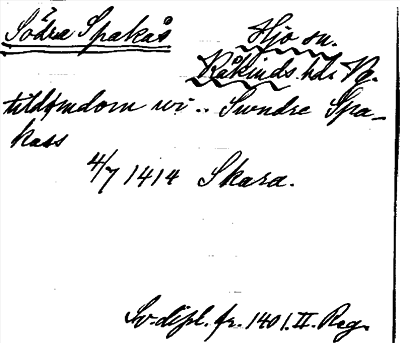 Södra Spakås
Hjo sn.
Råkinds hd. Vg.
tildømdom wi .. Swndre Spa-
kass
4/7 1414 Skara.
Sv. dipl. fr. 1401. II. Reg.